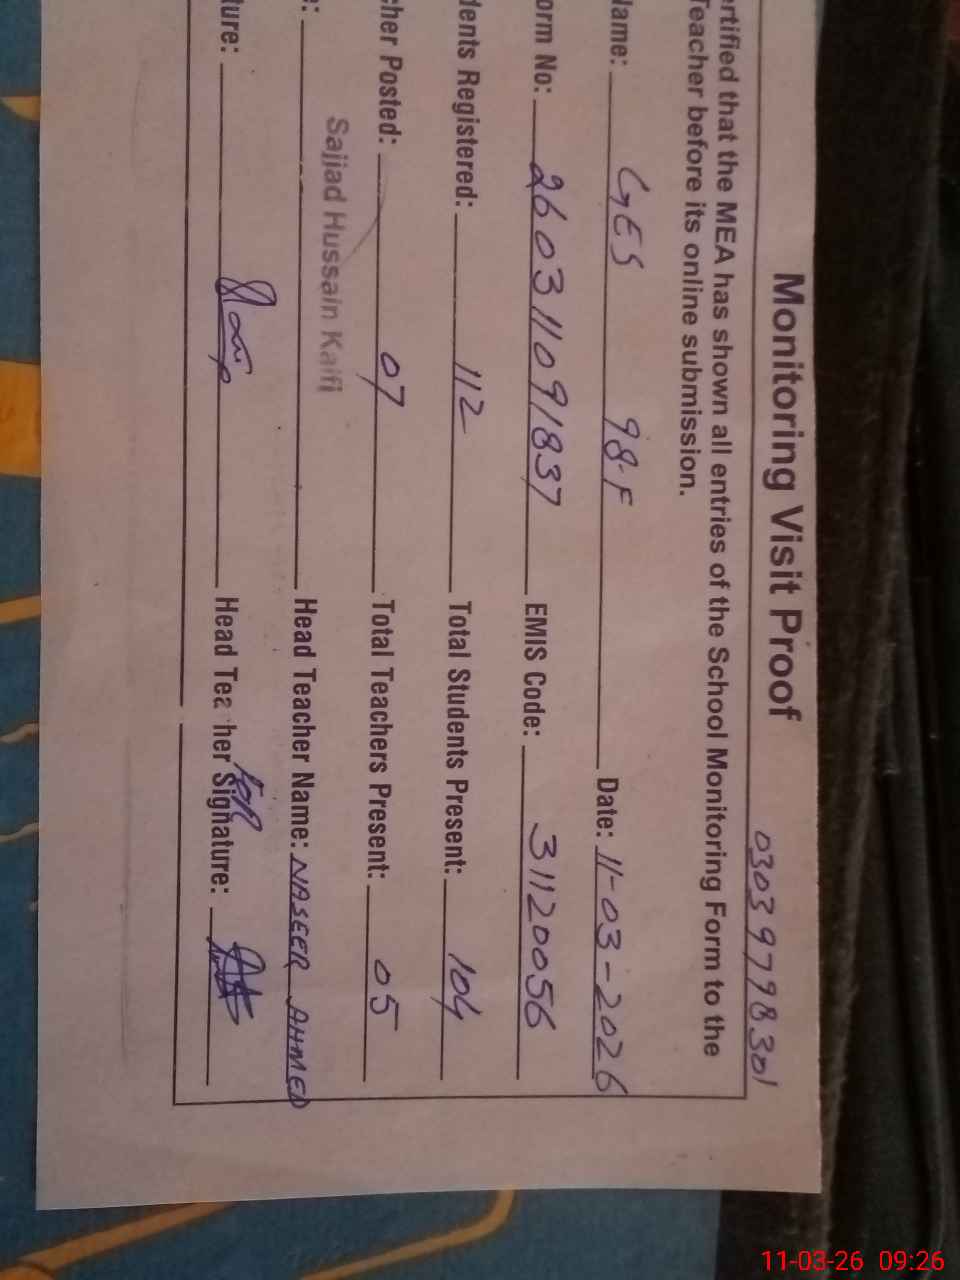 Monitoring Visit Proof
03039798301
ertified that the MEA has shown all entries of the School Monitoring Form to the
Teacher before its online submission.
Name: GES 98-F Date: 11-03-2026
orm No: 260311091837 EMIS Code: 31120056
dents Registered: 112 Total Students Present: 104
cher Posted: 07 Total Teachers Present: 05
Sajjad Hussain Kaifi
e: Head Teacher Name: NASEER AHMED
ture: Head Teacher Signature: for
11-03-26 09:26